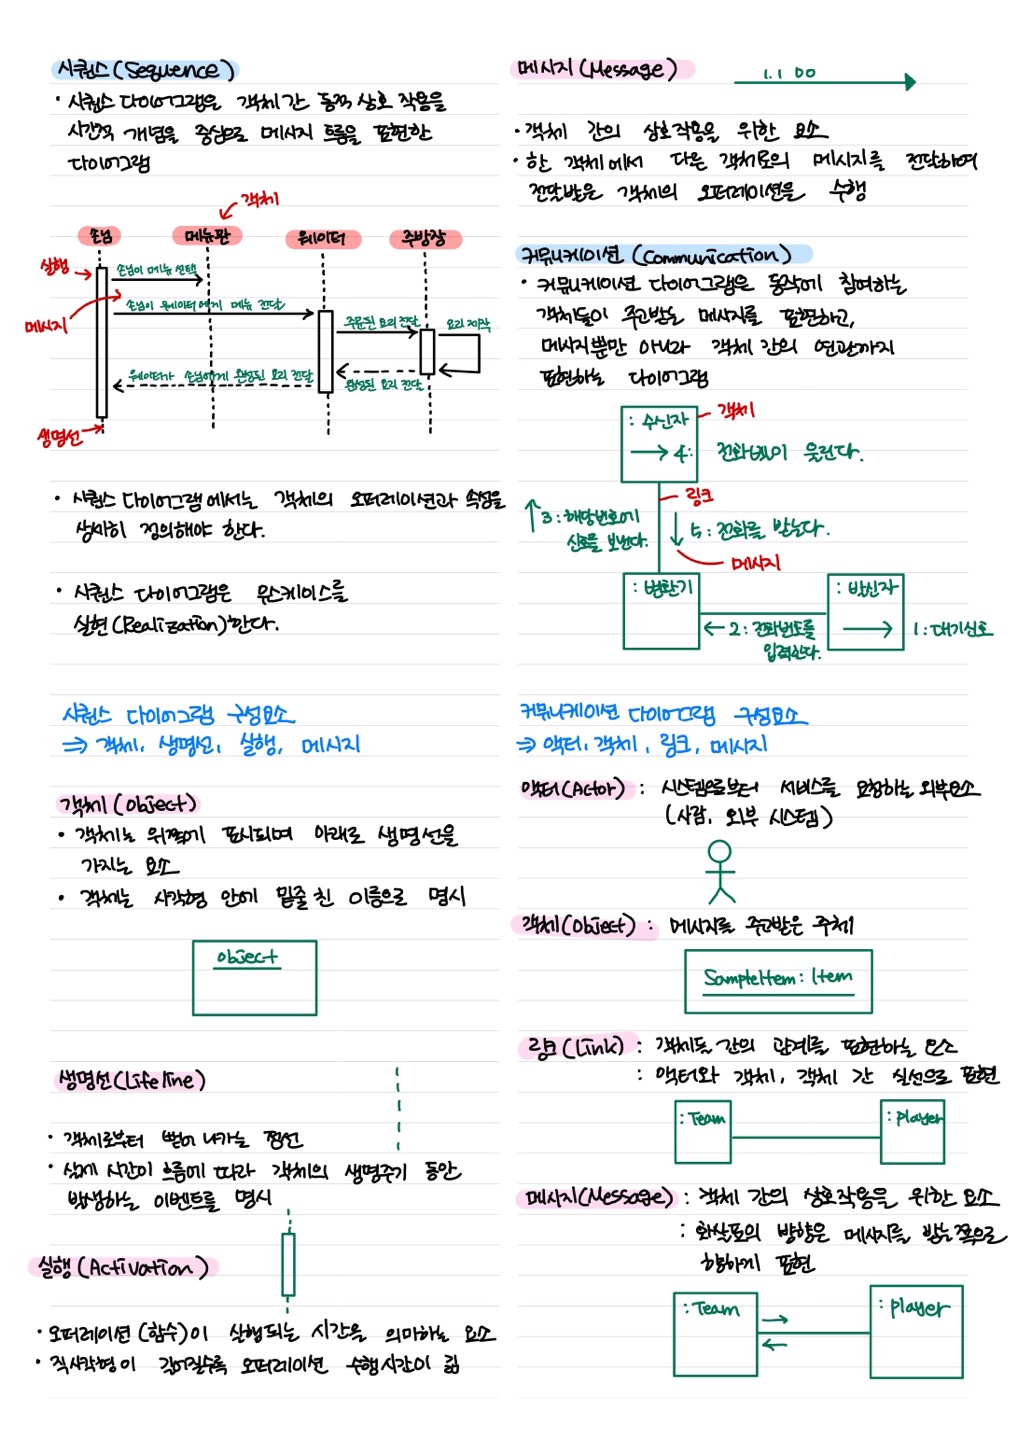 시퀀스 (Sequence)
• 시퀀스 다이어그램은 객체 간 동적 상호 작용을
시간적 개념을 중심으로 메시지 흐름을 표현한
다이어그램
객체
손님 메뉴판 웨이터 주방장
실행
손님이 메뉴 선택
메시지
손님이 웨이터에게 메뉴 전달
주문된 요리 전달
요리 제작
웨이터가 손님에게 완성된 요리 전달
완성된 요리 전달
생명선
• 시퀀스 다이어그램에서는 객체의 오퍼레이션과 속성을
상세히 정의해야 한다.
• 시퀀스 다이어그램은 유스케이스를
실현 (Realization) 한다.
시퀀스 다이어그램 구성요소
⇒ 객체, 생명선, 실행, 메시지
객체 (Object)
• 객체는 위쪽에 표시되며 아래로 생명선을
가지는 요소
• 객체는 사각형 안에 밑줄 친 이름으로 명시
object
생명선(Lifeline)
• 객체로부터 뻗어 나가는 점선
• 실제 시간이 흐름에 따라 객체의 생명주기 동안
발생하는 이벤트를 명시
실행 (Activation)
• 오퍼레이션 (함수)이 실행되는 시간을 의미하는 요소
• 직사각형이 길어질수록 오퍼레이션 수행시간이 긺
메시지 (Message)
1.1 00
• 객체 간의 상호작용을 위한 요소
• 한 객체에서 다른 객체로의 메시지를 전달하여
전달받은 객체의 오퍼레이션을 수행
커뮤니케이션 (Communication)
• 커뮤니케이션 다이어그램은 동작에 참여하는
객체들이 주고받는 메시지를 표현하고,
메시지뿐만 아니라 객체 간의 연관까지
표현하는 다이어그램
: 수신자
객체
→ 4: 전화벨이 울린다.
링크
↑ 3 : 해당번호에
신호를 보낸다.
↓ 5 : 전화를 받는다.
메시지
: 변환기
: 발신자
← 2 : 전화번호를
입력한다.
→ 1 : 대기신호
커뮤니케이션 다이어그램 구성요소
⇒ 액터, 객체, 링크, 메시지
액터(Actor) : 시스템으로부터 서비스를 요청하는 외부요소
(사람, 외부 시스템)
객체(Object) : 메시지를 주고받은 주체
SampleItem : Item
링크 (Link) : 객체들 간의 관계를 표현하는 요소
: 액터와 객체, 객체 간 실선으로 표현
: Team
: player
메시지(Message) : 객체 간의 상호작용을 위한 요소
: 화살표의 방향은 메시지를 받는 쪽으로
향하게 표현
: Team
: player